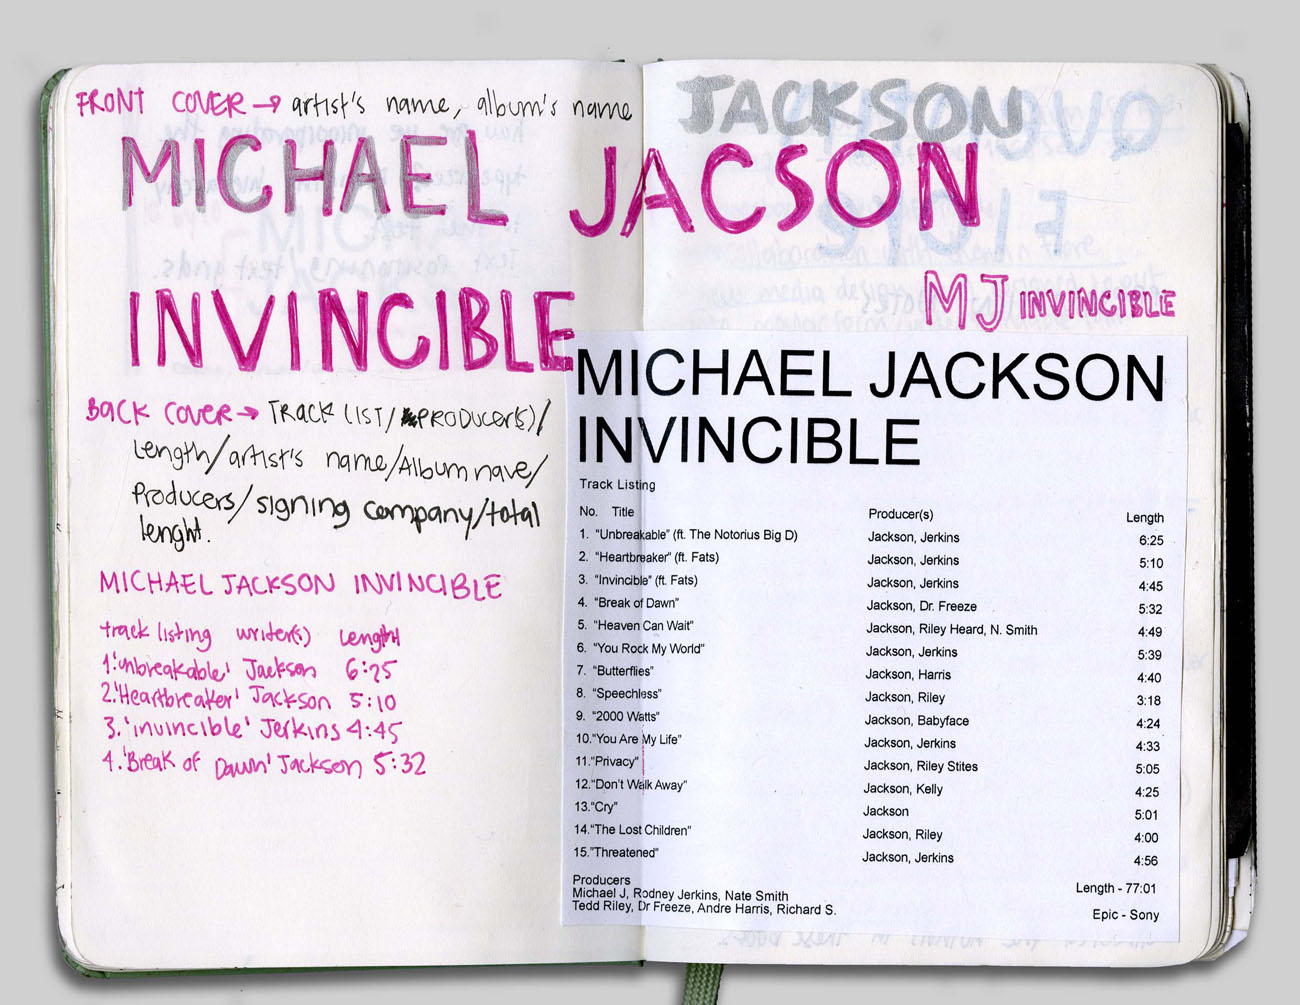 FRONT COVER → artist's name, album's name
JACKSON
MICHAEL JACSON
INVINCIBLE
MJ INVINCIBLE
BACK COVER → TRACK LIST/ PRODUCER(S)/
Length/artist's name/Album nave/
Producers/signing company/total
lenght.
MICHAEL JACKSON INVINCIBLE
track listing writer(s) Length
1.'unbreakable' Jackson 6:25
2.'Heartbreaker' Jackson 5:10
3.'invincible' Jerkins 4:45
4.'Break of Dawn' Jackson 5:32
MICHAEL JACKSON
INVINCIBLE
Track Listing
No. Title Producer(s) Length
1. "Unbreakable" (ft. The Notorius Big D) Jackson, Jerkins 6:25
2. "Heartbreaker" (ft. Fats) Jackson, Jerkins 5:10
3. "Invincible" (ft. Fats) Jackson, Jerkins 4:45
4. "Break of Dawn" Jackson, Dr. Freeze 5:32
5. "Heaven Can Wait" Jackson, Riley Heard, N. Smith 4:49
6. "You Rock My World" Jackson, Jerkins 5:39
7. "Butterflies" Jackson, Harris 4:40
8. "Speechless" Jackson, Riley 3:18
9. "2000 Watts" Jackson, Babyface 4:24
10."You Are My Life" Jackson, Jerkins 4:33
11."Privacy" Jackson, Riley Stites 5:05
12."Don't Walk Away" Jackson, Kelly 4:25
13."Cry" Jackson 5:01
14."The Lost Children" Jackson, Riley 4:00
15."Threatened" Jackson, Jerkins 4:56
Producers
Michael J, Rodney Jerkins, Nate Smith
Tedd Riley, Dr Freeze, Andre Harris, Richard S.
Length - 77:01
Epic - Sony